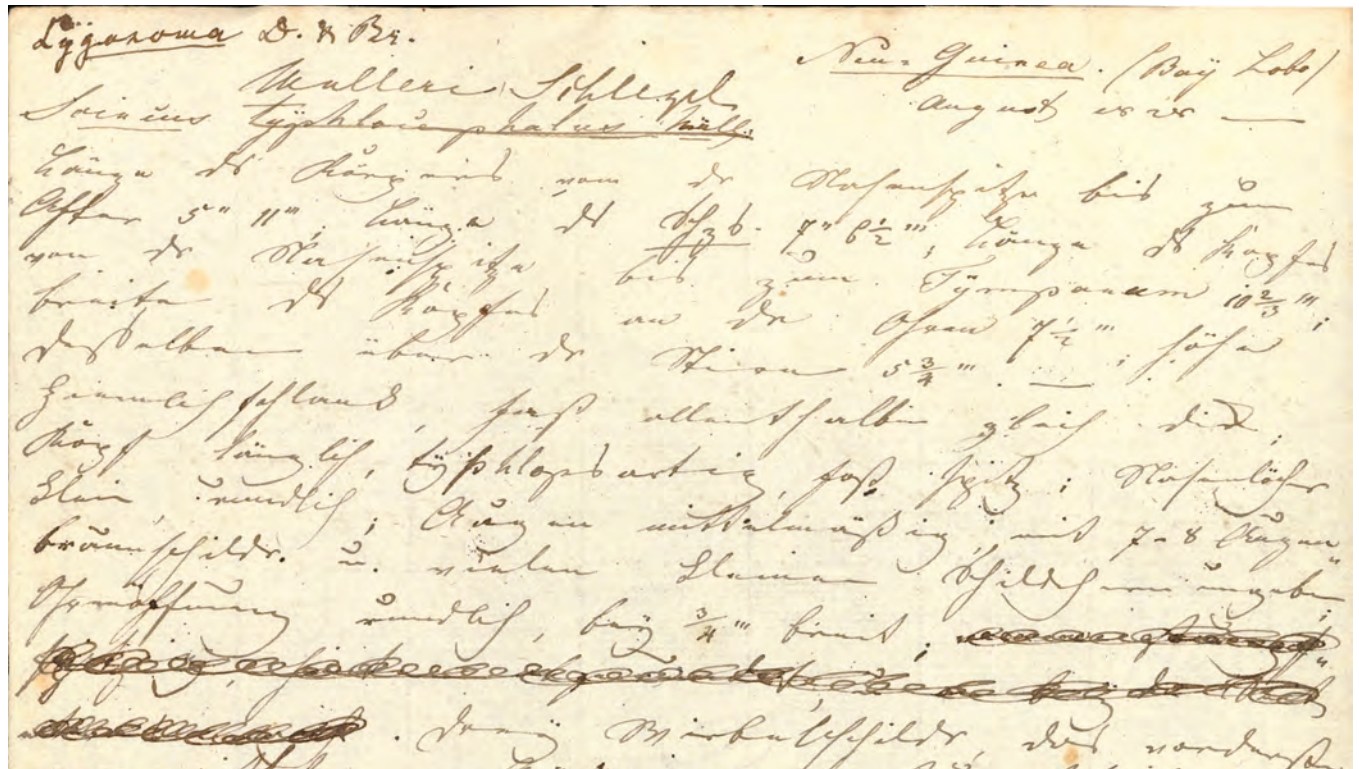 Lygosoma D. & Br.
Neu-Guinea. (Bay Lobo)
Mülleri Schlegel
August 1828 —
Scincus typhlocephalus Müll.
Länge des Körpers von der Nasenspitze bis zum
After 5" 11"', Länge des Schzs. 7" 6½"', Länge des Kopfes
von der Nasenspitze bis zum Tÿmpanum 10⅔"';
breite des Kopfes an den Ohren 7½"'; höhe
desselben über der Stirn 5¾"'. —
Ziemlich schlank, fast allenthalben gleich dick,
Kopf länglich, tÿphlopsartig, fast spitz; Nasenlöcher
klein, rundlich; Augen mittelmäßig, mit 7-8 Augen„
braunschilder. u. vielen kleinen Schildchen umgeben;
Ohröffnung rundlich, beÿ ¾"' breit;
dreÿ Wirbelschilder, das vorderste